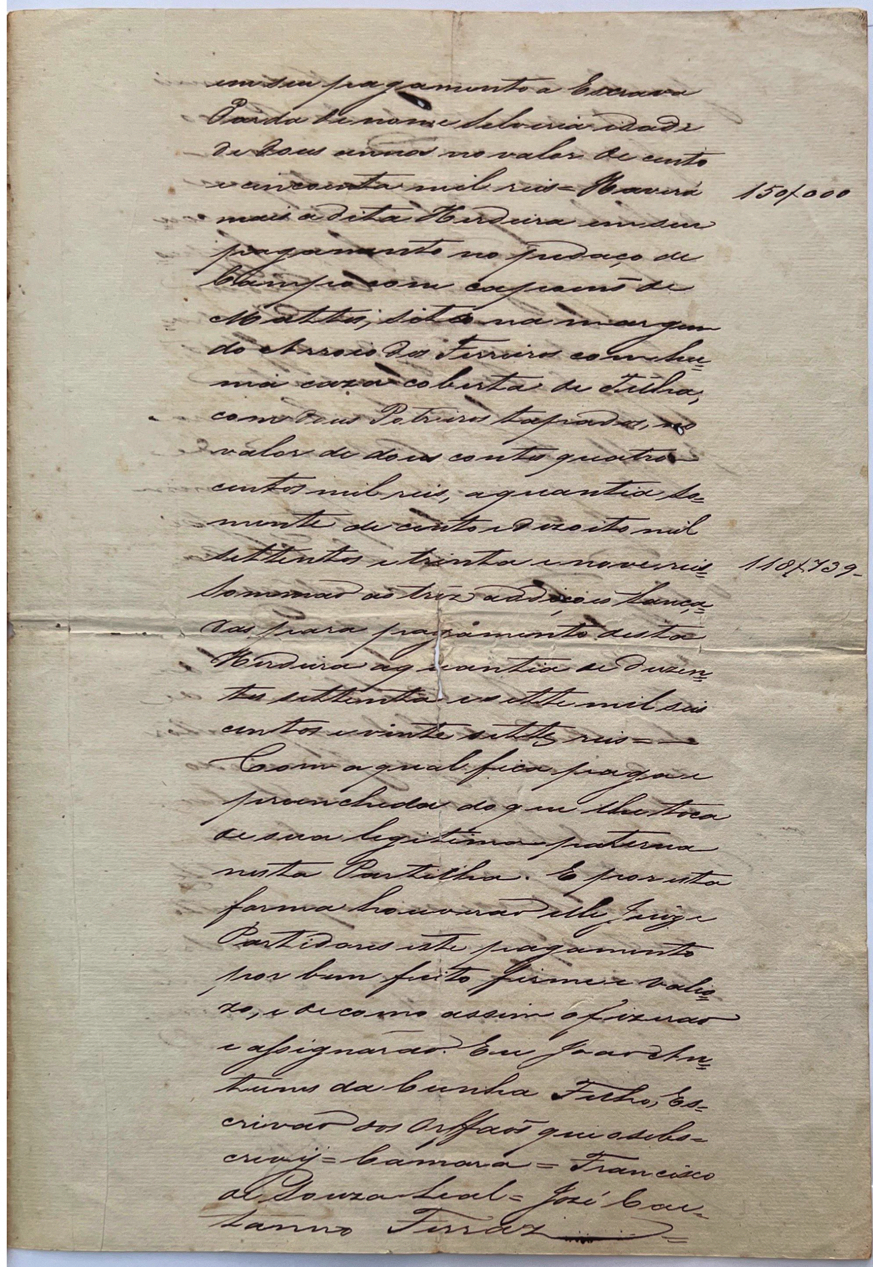 em seu pagamento a Escrava
Parda de nome Selveria idade
de dous annos no valor de cento
e cincoenta mil reis = Haverá 150$000
mais a dita Herdeira em seu
pagamento no pedaço de
Campo com capoens de
Mattos, sito na margem
do Arroio dos Ferreiros com hu=
ma caza coberta de Telha,
com dous Potreiros tapados, no
valor de dous contos quatro
centos mil reis, a quantia so=
mente de cento e dezoito mil
settentos e trinta e nove reis= 118$739-
Sommão as tres addiçoes lança=
das para pagamento desta
Herdeira a quantia de duzen=
tos settenta e sette mil seis
centos e vinte sette reis=
Com a qual fica paga e
preenchida do que lhe toca
de sua legitima paterna
nesta Partilha. E por esta
forma houverão elle Juiz e
Partidores este pagamento
por bem feito firme e valio=
zo, e de como assim o fizerão
e assignárão. Eu João An=
tunes da Cunha Filho, Es=
crivão dos Orffãos que o sobs=
crevij= Camara = Francisco
de Souza Leal= José Cae=
tanno Ferraz =